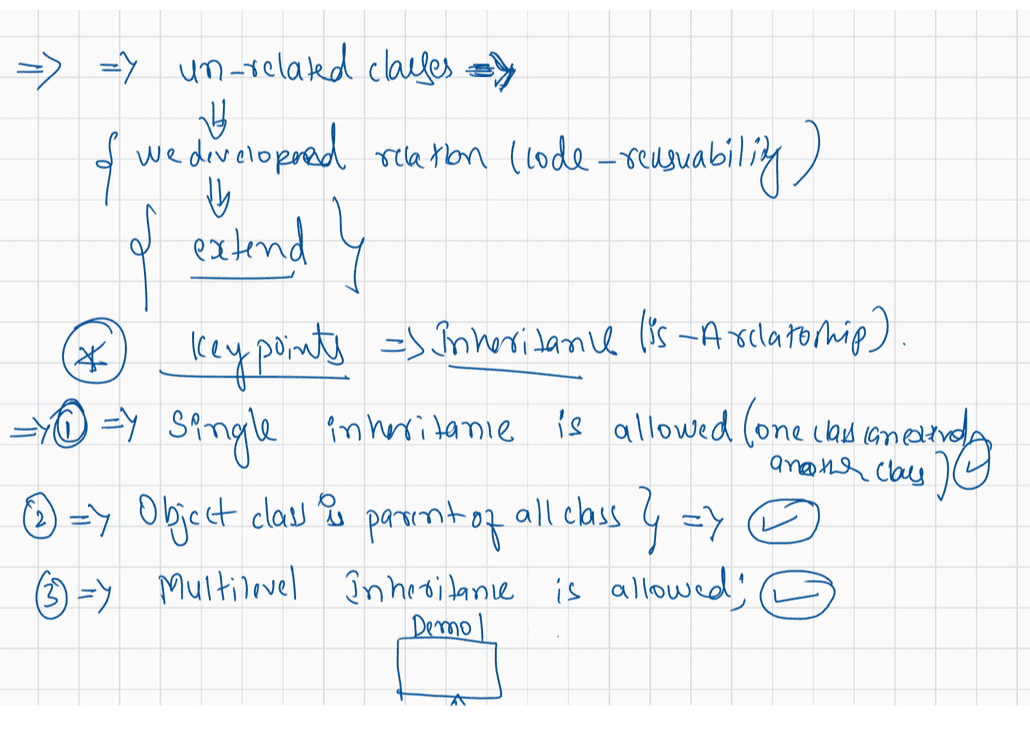 => => un-related classes =>
{ we developed relation (code-reusuability)
{ extend }
* Key points => Inheritance (is-A relatonship).
=> 1 => Single inheritance is allowed (one class can extend
another class)
2 => Object class is parent of all class } =>
3 => Multilevel Inheritance is allowed;
Demo1